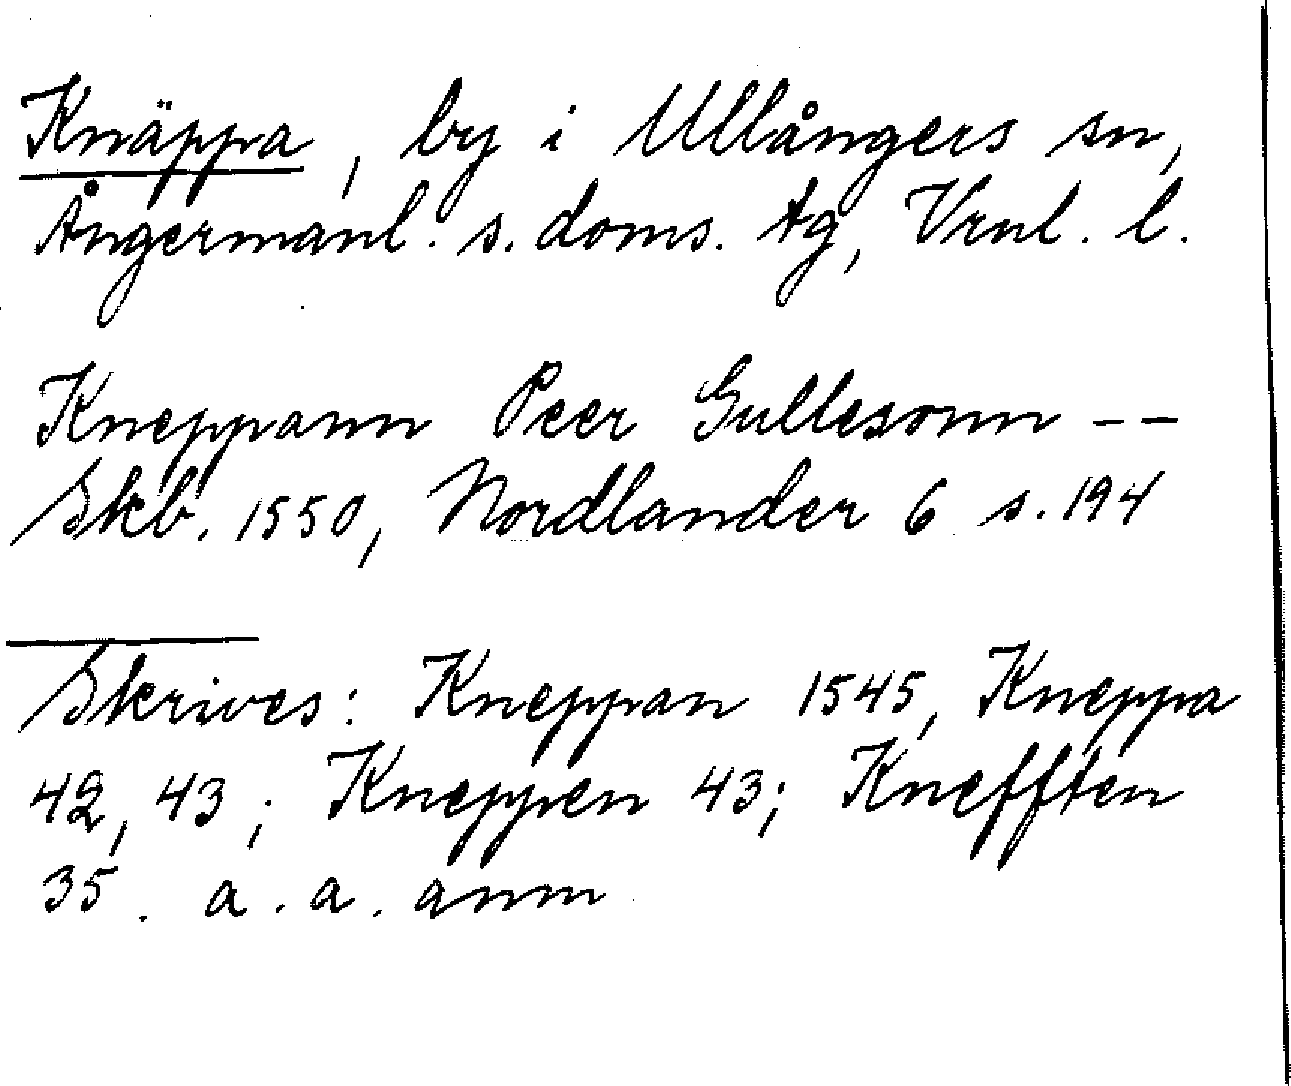 Knäppa, by i Ullångers sn,
Ångermanl. s. doms. tg, Vrnl. l.
Kneppann Peer Gullesonn --
Skb. 1550, Nordlander 6 s. 194
Skrives: Kneppan 1545, Kneppa
42, 43; Kneppen 43; Knefften
35. a. a. anm